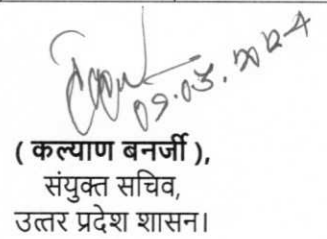 09.03.2024
( कल्याण बनर्जी ),
संयुक्त सचिव,
उत्तर प्रदेश शासन।